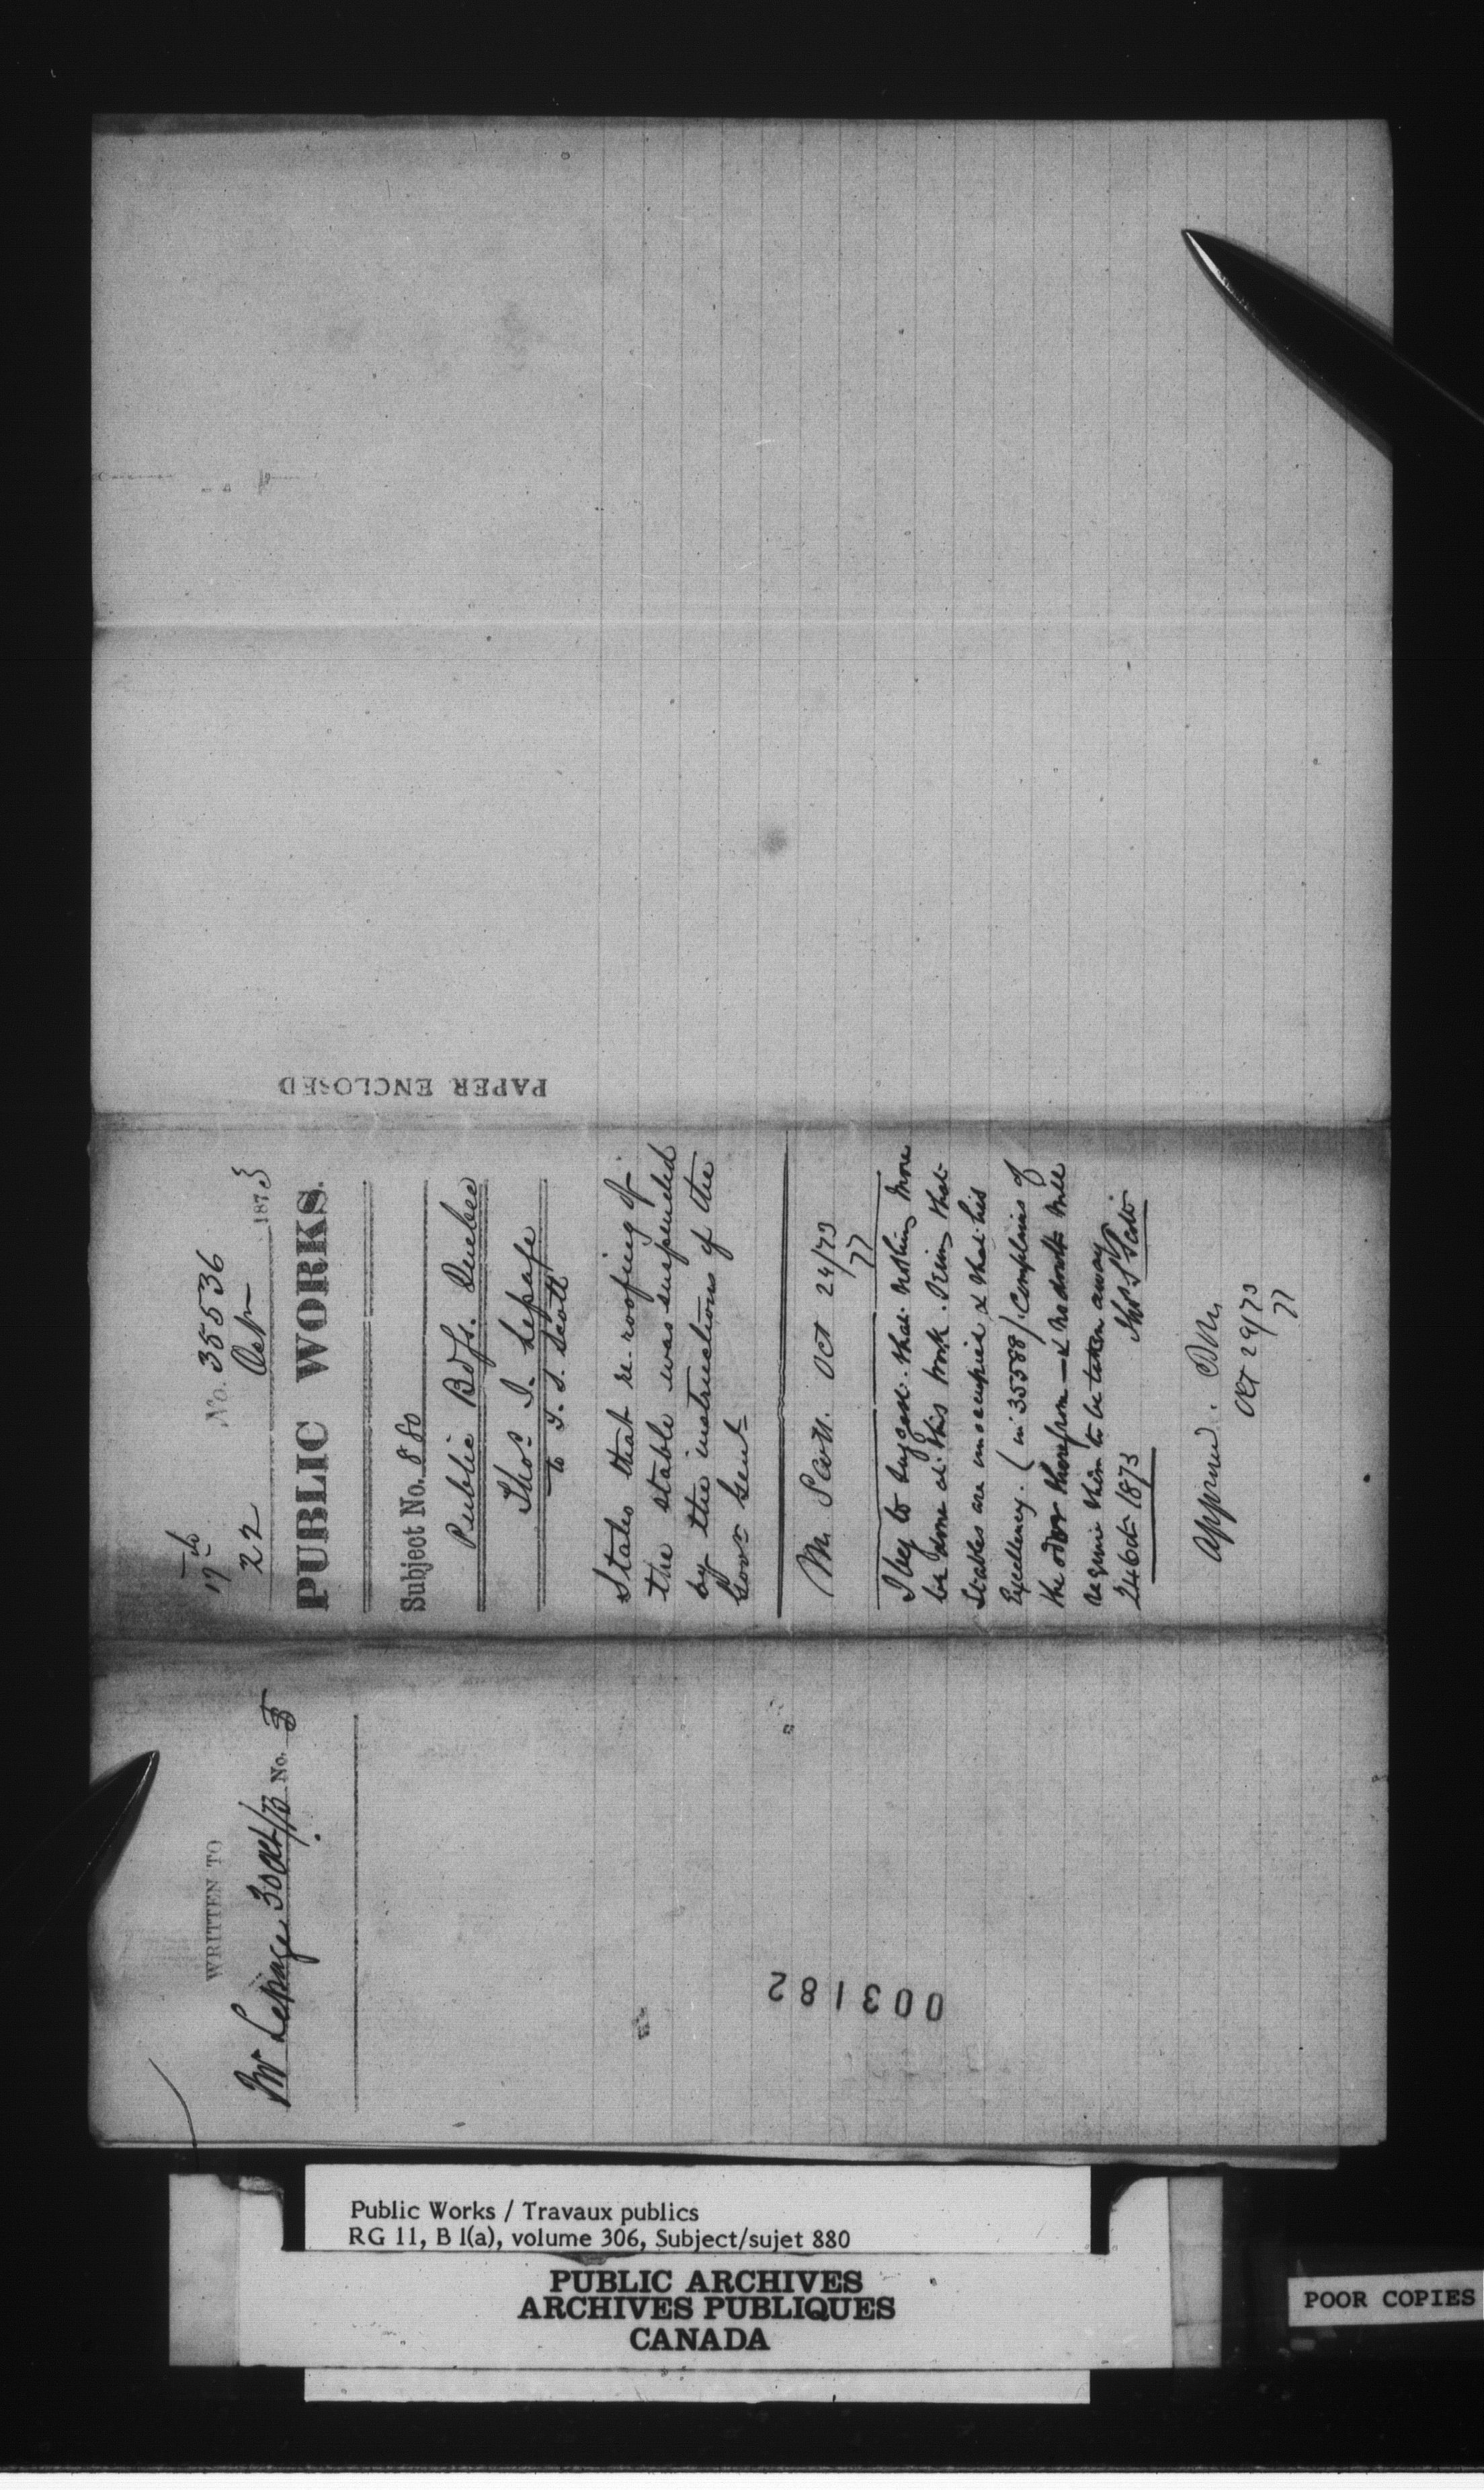 WRITTEN TO
Mr Lepage 30 Oct/73 No.
19th
No. 35536
22 Oct 1873
PUBLIC WORKS.
Subject No. 880
Public Bdgs. Quebec
Thos. I. Lepage
to T. S. Scott
States that re-roofing of
the stable was suspended
by the instructions of the
Govr Genl
Mr Scott. Oct 24/73
I beg to suggest that nothing more
be done at this work. Seeing that
Stables are unoccupied & that his
Excellency (in 35588) Complains of
the odor therefrom — & no doubt will
require them to be taken away
24 Oct 1873 Thos S Scott
Approved.
Oct 29/73
PAPER ENCLOSED
003182
Public Works / Travaux publics
RG 11, B 1(a), volume 306, Subject/sujet 880
PUBLIC ARCHIVES
ARCHIVES PUBLIQUES
CANADA
POOR COPIES